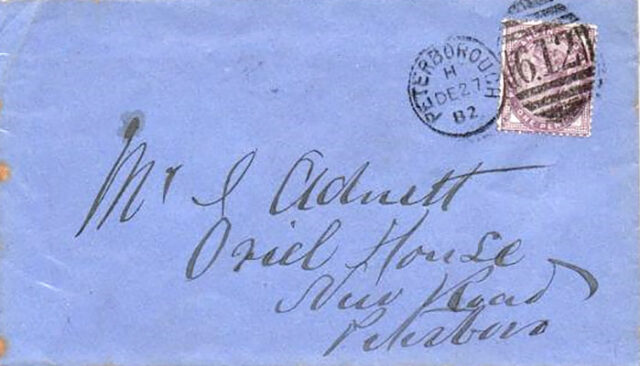 PETERBOROUGH
H
DE 27
82
612
ONE PENNY
Mr J Adnett
Oriel House
New Road
Peterboro